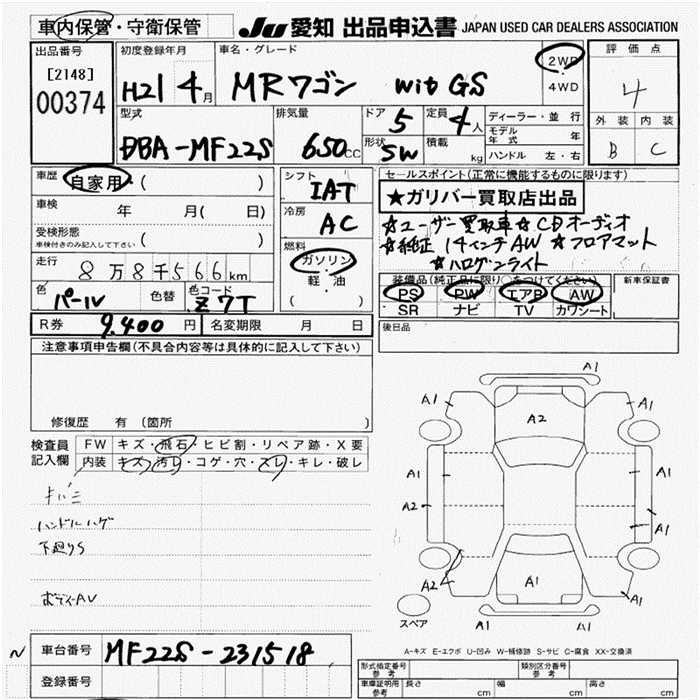 車内保管・守衛保管
JU 愛知 出品申込書 JAPAN USED CAR DEALERS ASSOCIATION
出品番号
[2148]
00374
初度登録年月
H21 4月
車名・グレード
MRワゴン wit GS
2WD
4WD
評価点
4
外装 内装
B C
型式
DBA-MF22S
排気量
650cc
ドア
5
定員
4人
形状
SW
積載
kg
ディーラー・並行
モデル年式 年
ハンドル 左・右
車歴
自家用・( )
車検
年 月( 日)
受検形態
車検付きのみ記入して下さい ( )
走行
8万8千566km
色
パール
色替
色コード
Z7T
シフト
IAT
冷房
AC
燃料
ガソリン
軽・油
( )
セールスポイント(正常に機能するものに限ります)
★ガリバー買取店出品
☆ユーザー買取車☆CDオーディオ
☆純正14インチAW ☆フロアマット
☆ハロゲンライト
装備品(純正品に限り○をつけてください)
PS PW エアB AW
SR ナビ TV カワシート
新車保証書
R券 9,400円
名変期限 月 日
後日品
注意事項申告欄(不具合内容等は具体的に記入して下さい)
修復歴 有(箇所 )
検査員記入欄
FW キズ・飛石・ヒビ割・リペア跡・X要
内装 キズ・汚レ・コゲ・穴・スレ・キレ・破レ
ハンドルハゲ
下廻りS
ボディーAU
A1
A1 A2 A1
A1 A1
A2 A1
A1
A2 A1 A1
スペア
A1 A1
A-キズ E-エクボ U-凹み W-補修跡 S-サビ C-腐食 XX-交換済
N
車台番号
MF22S-231518
登録番号
形式指定番号
参考
類別区分番号
参考
車庫証明用
参考
長さ cm 幅 cm 高さ cm